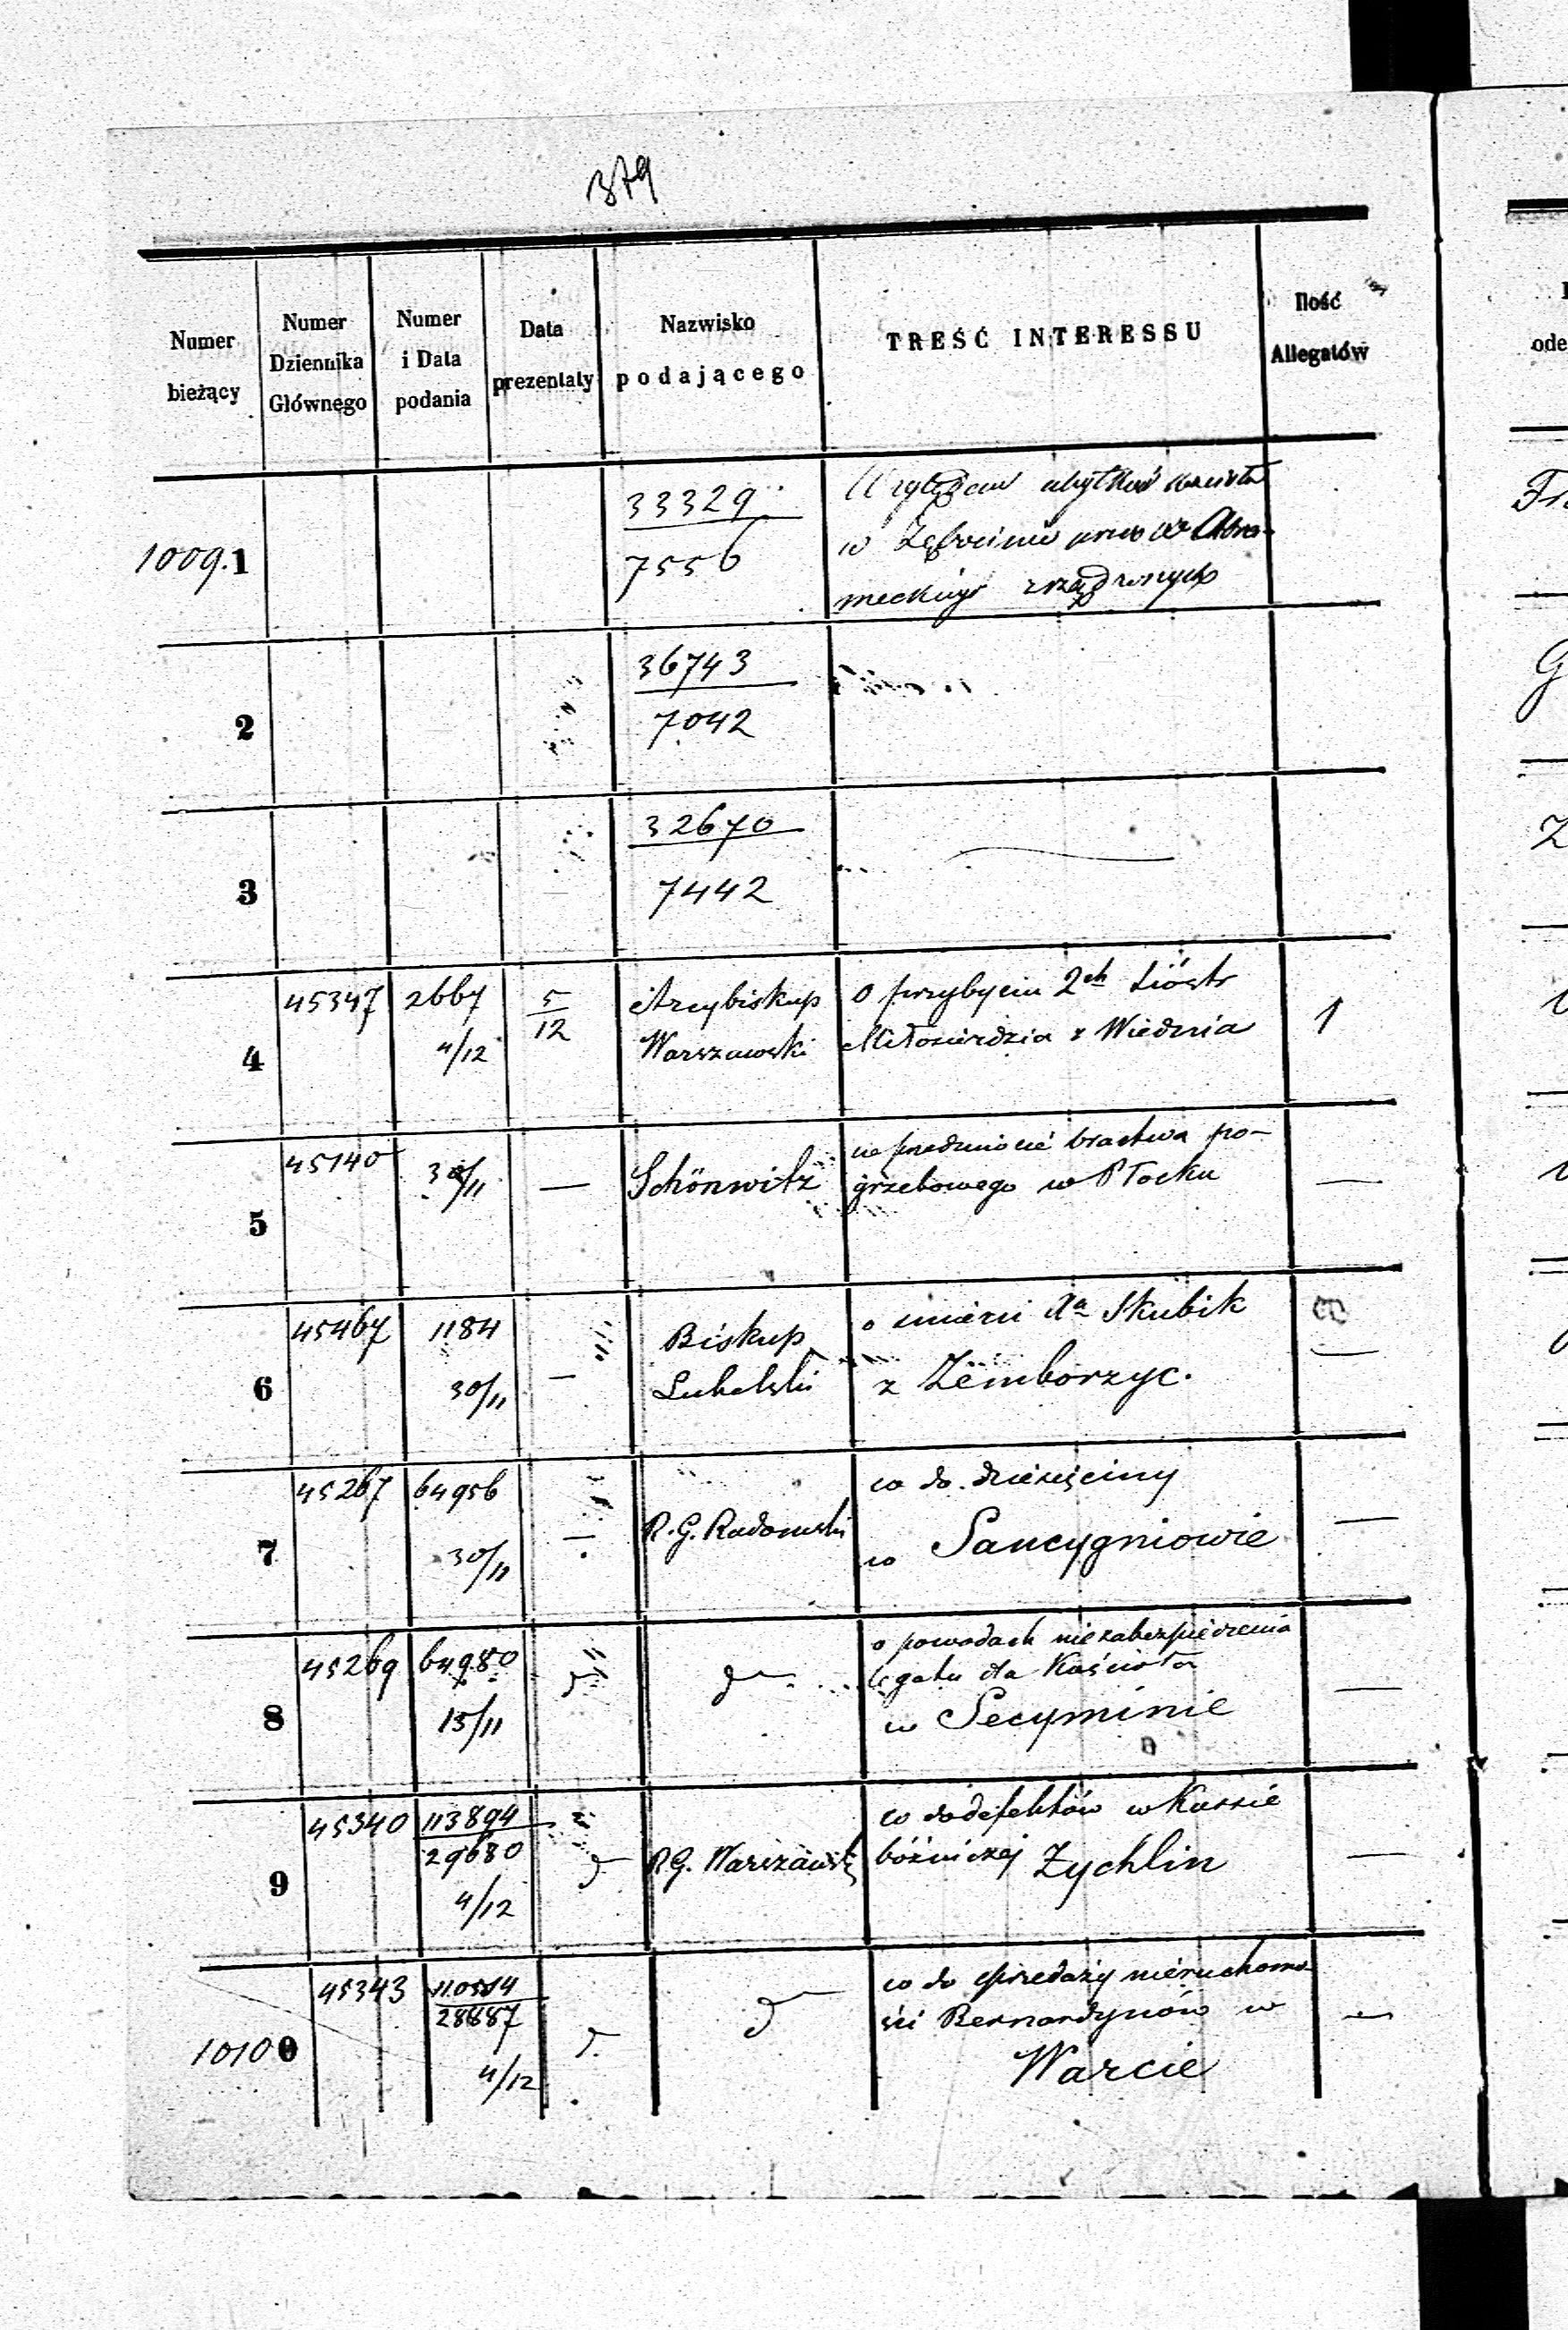 379
Numer bieżący
Numer Dziennika Głównego
Numer i Data podania
Data prezentaty
Nazwisko podającego
TREŚĆ INTERESSU
Ilość Allegatów
1009.1
33329
7556
w
2
36743
7042
3
32670
7442
4
45347
2667
4/12
5
12
Arcybiskup
Warszawski
o przybyciu 2ch Sióstr
Miłosierdzia z Wiednia
1
5
45140
30/11
—
Schönwitz
w przedmiocie bractwa po-
grzebowego w Płocku
—
6
45467
1184
30/11
—
Biskup
Lubelski
o śmierci Xa Skubik
z Zemborzyc.
—
7
45267
64956
30/11
—
R. G. Radomski
co do dziesięciny
w Sancygniowie
—
8
45269
64980
15/11
d
d
o powodach niezabezpieczenia
legatu dla Kościoła
w Secyminie
—
9
45340
113894
29680
4/12
d
R.G. Warszawski
co do defektów w Kassie
bóźniczej Zychlin
—
10100
45343
110514
28887
4/12
d
d
co do sprzedaży nieruchomo-
ści Bernardynów w
Warcie
—